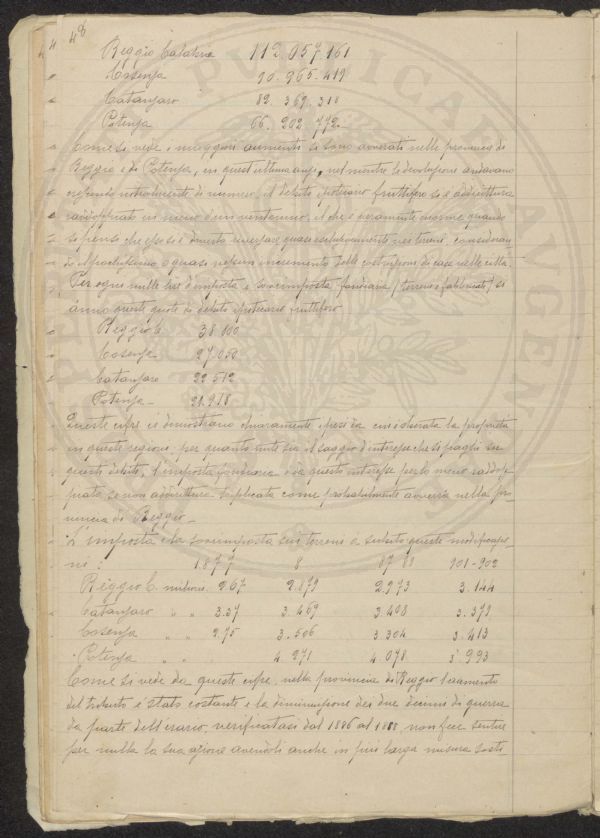 48
Reggio Calabria 112.057.161
Cosenza 90.965.419
Catanzaro 82.369.318
Potenza 66.202.772
Come si vede i maggiori aumenti si sono avverati nelle provincie di
Reggio e di Potenza, in quest'ultima anzi, nel mentre le devoluzioni andavano
crescendo notevolmente di numero, il debito ipotecario fruttifero si è addirittura
raddoppiato in meno d'un ventennio, il che è veramente enorme quando
si pensi che esso si è dovuto riversare quasi esclusivamente sui terreni, consideran
do il pochissimo o quasi nessun incremento delle costruzioni di case nelle città.
Per ogni mille lire d'imposta e sovrimposta fondiaria (terreni e fabbricati) si
ànno queste quote di debito ipotecario fruttifero
Reggio C. 38.100
Cosenza 27.050
Catanzaro 22.512
Potenza 21.918
Queste cifre ci dimostrano chiaramente i pesi da cui è oberata la proprietà
in queste regioni; per quanto mite sia il saggio d'interesse che si paghi su
questo debito, l'imposta fondiaria è da questo interesse per lo meno raddop
piata, se non addirittura triplicata come probabilmente avverrà nella pro
vincia di Reggio.
L'imposta e la sovrimposta sui terreni à subito queste modificazio
ni: 1877 8 87 88 901-902
Reggio C. milioni 2.67 2.879 2.973 3.144
Catanzaro " " 3.37 3.469 3.408 3.379
Cosenza " " 2.75 3.506 3.304 3.413
Potenza " " 4.271 4.078 3.993
Come si vede da queste cifre, nella provincia di Reggio l'aumento
del tributo è stato costante e la diminuzione dei due decimi di guerra
da parte dell'erario, verificatasi dal 1886 al 1888 non fece sentire
per nulla la sua azione avendoli anche in più larga misura sosti